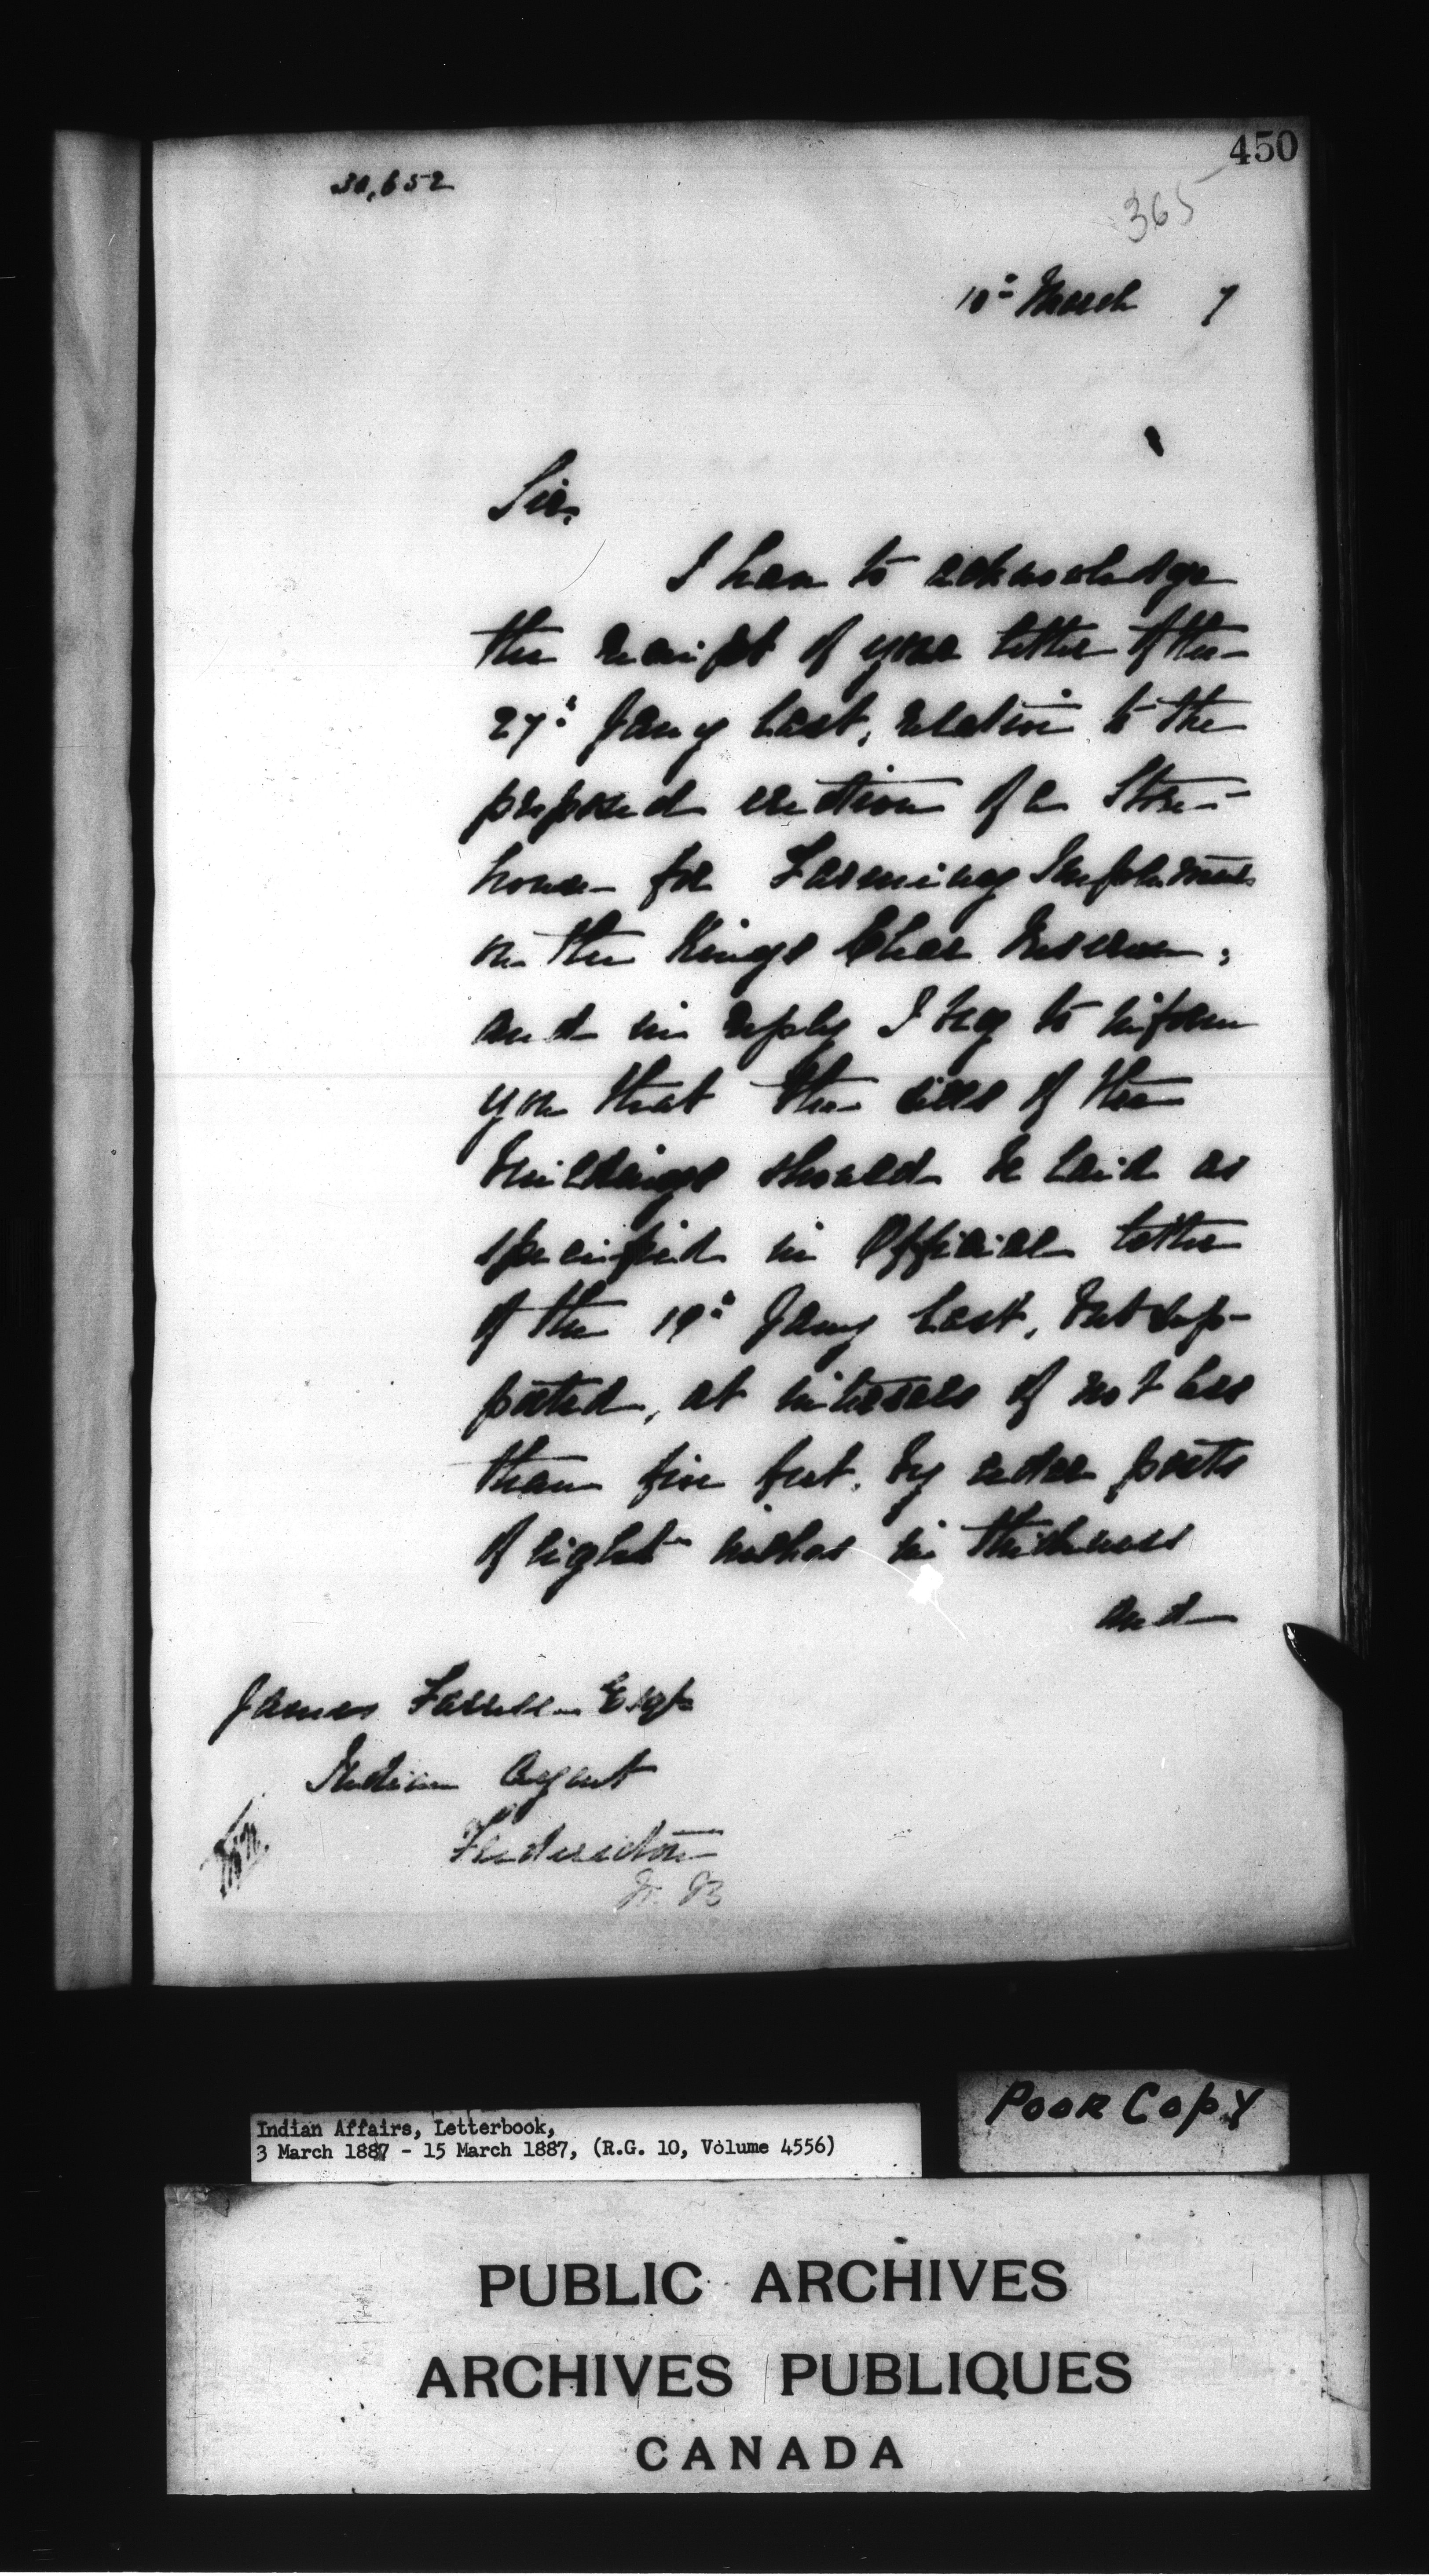 450
30,652
365
10th March 7
Sir,
I have to acknowledge
the receipt of your letter of the
27th Jany last, relative to the
proposed erection of a Store-
house for Farming Implements
on the Kings Clear Reserve,
and in reply I beg to inform
you that the sills of the
buildings should be laid as
specified in Official letter
of the 19th Jany last, but sup-
ported, at intervals of not less
than five feet, by cedar posts
of eight inches in thickness
and
James Farrell Esqr
Indian Agent
Fredericton
N. B
POOR COPY
Indian Affairs, Letterbook,
3 March 1887 - 15 March 1887, (R.G. 10, Volume 4556)
PUBLIC ARCHIVES
ARCHIVES PUBLIQUES
CANADA